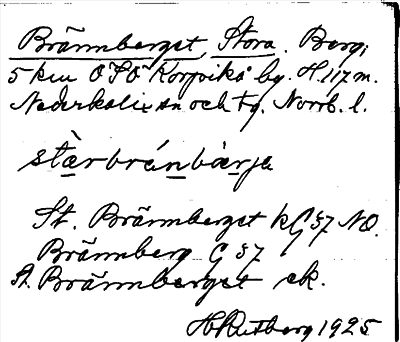 Brännberget, Stora. Berg;
5 km OSO Korpviks by. H. 117 m.
Nederkalix sn och tg. Norrb. l.
stærbránbærja
St. Brännberget kG 57 NO.
Brännberg G 57
St. Brännberget ek.
H Rutberg 1925